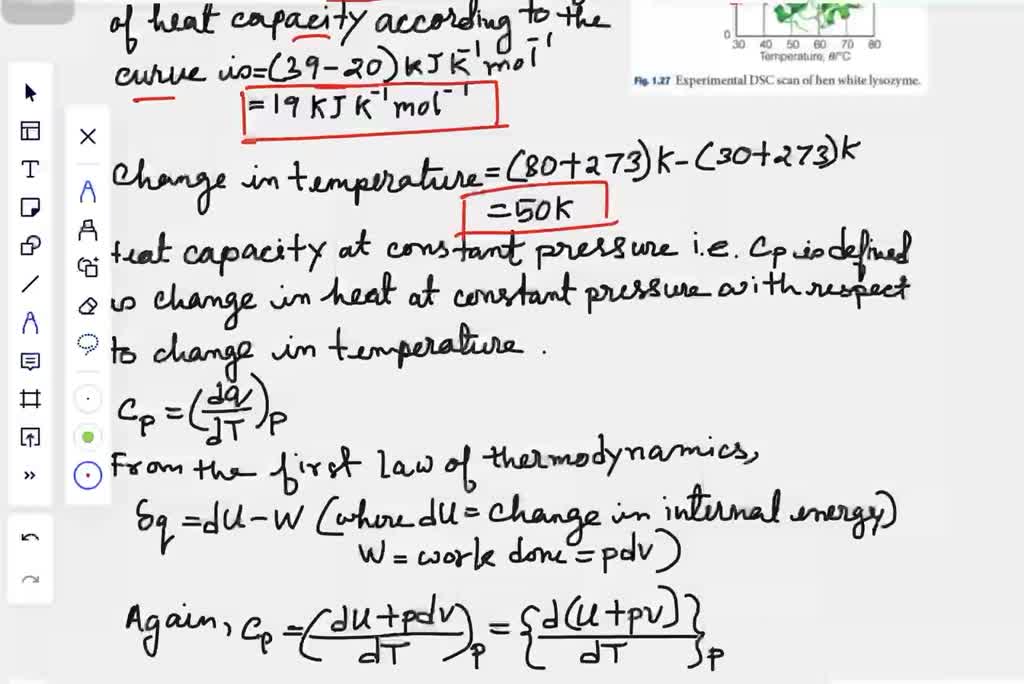 of heat capacity according to the
curve is = (39-20) kJ K⁻¹ mol⁻¹
= 19 kJ K⁻¹ mol⁻¹
0
30 40 50 60 70 80
Temperature, θ/°C
Fig. 1.27 Experimental DSC scan of hen white lysozyme.
Change in temperature = (80+273)K - (30+273)K
= 50K
Heat capacity at constant pressure i.e. Cp is defined
is change in heat at constant pressure with respect
to change in temperature.
Cp = (dq/dT)p
From the first law of thermodynamics,
δq = dU - W (where dU = change in internal energy)
W = work done = pdv)
Again, Cp = (dU + pdv/dT)p = {d(U + pv)/dT}p